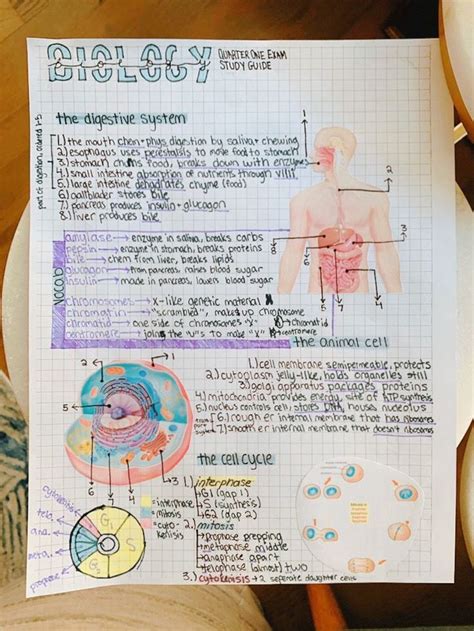 BIOLOGY
QUARTER ONE EXAM
STUDY GUIDE
the digestive system
part of digestion, ordered 1-5
1.) the mouth chem + phys digestion by saliva + chewing
2.) esophagus uses peristalsis to move food to stomach
3.) stomach churns food, breaks down with enzymes
4.) small intestine absorption of nutrients through villi
5.) large intestine dehydrates chyme (food)
6.) gallbladder stores bile
7.) pancreas produces insulin + glucagon
8.) liver produces bile
1
2
3
6
8
7
5
4
vocab
amylase → enzyme in saliva, breaks carbs
pepsin → enzyme in stomach, breaks proteins
bile → chem from liver, breaks lipids
glucagon → from pancreas raises blood sugar
insulin → made in pancreas, lowers blood sugar
chromosomes → x-like genetic material
chromatin → "scrambled", makes up chromosome
chromatid → one side of chromosome's X
chromatid
centromere → joins the "v"s to make "X"
centromere
the animal cell
1.) cell membrane semipermeable, protects
2.) cytoplasm jelly-like, holds organelles still
3.) golgi apparatus packages proteins
4.) mitochondria provides energy, site of ATP synthesis
5.) nucleus controls cell, stores DNA, houses nucleolus
6.) rough er internal membrane that has ribosomes
7.) smooth er internal membrane that doesn't ribosomes
2
1
5
6
7
4
3
the cell cycle
1.) interphase
G1 (gap 1)
S (synthesis)
G2 (gap 2)
2.) mitosis
prophase prepping
metaphase middle
anaphase apart
telophase (almost) two
3.) cytokinesis → 2 seperate daughter cells
= interphase
= mitosis
= cyto-
kenisis
cytokenisis
telo.
ana.
meta.
prophase
G1
S
G2